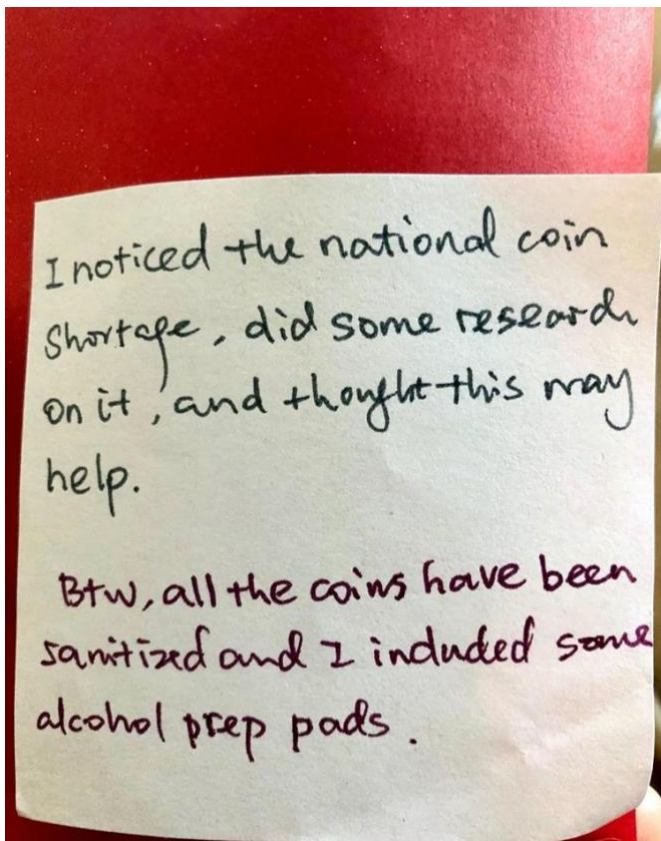 I noticed the national coin
shortage, did some research
on it, and thought this may
help.
Btw, all the coins have been
sanitized and I included some
alcohol prep pads.